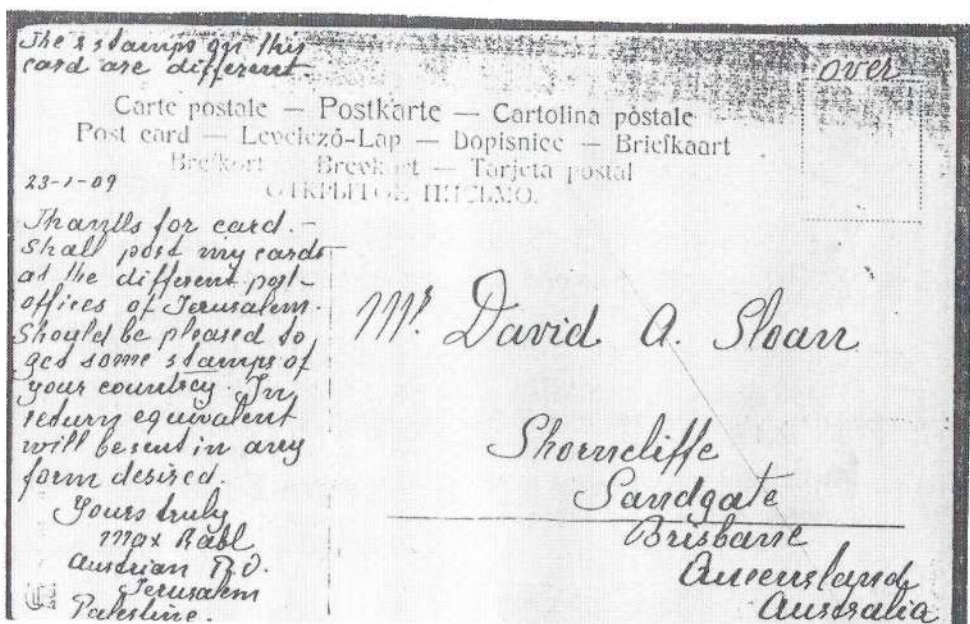 The 2 stamps on this
card are different
over
Carte postale — Postkarte — Cartolina postale
Post card — Levelező-Lap — Dopisnice — Briefkaart
Brefkort — Brevkort — Tarjeta postal
ОТКРЫТОЕ ПИСЬМО.
23-1-09
Thanks for card. —
Shall post my cards
at the different post-
offices of Jerusalem.
Should be pleased to
get some stamps of
your country. In
return equivalent
will be sent in any
form desired.
Yours truly
Max Rabl
Austrian P.O.
Jerusalem
Palestine.
Mr. David A. Sloan
Shorncliffe
Sandgate
Brisbane
Queensland
Australia